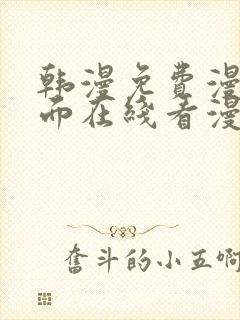 韩漫免费漫
而在线看漫
奋斗的小五啊